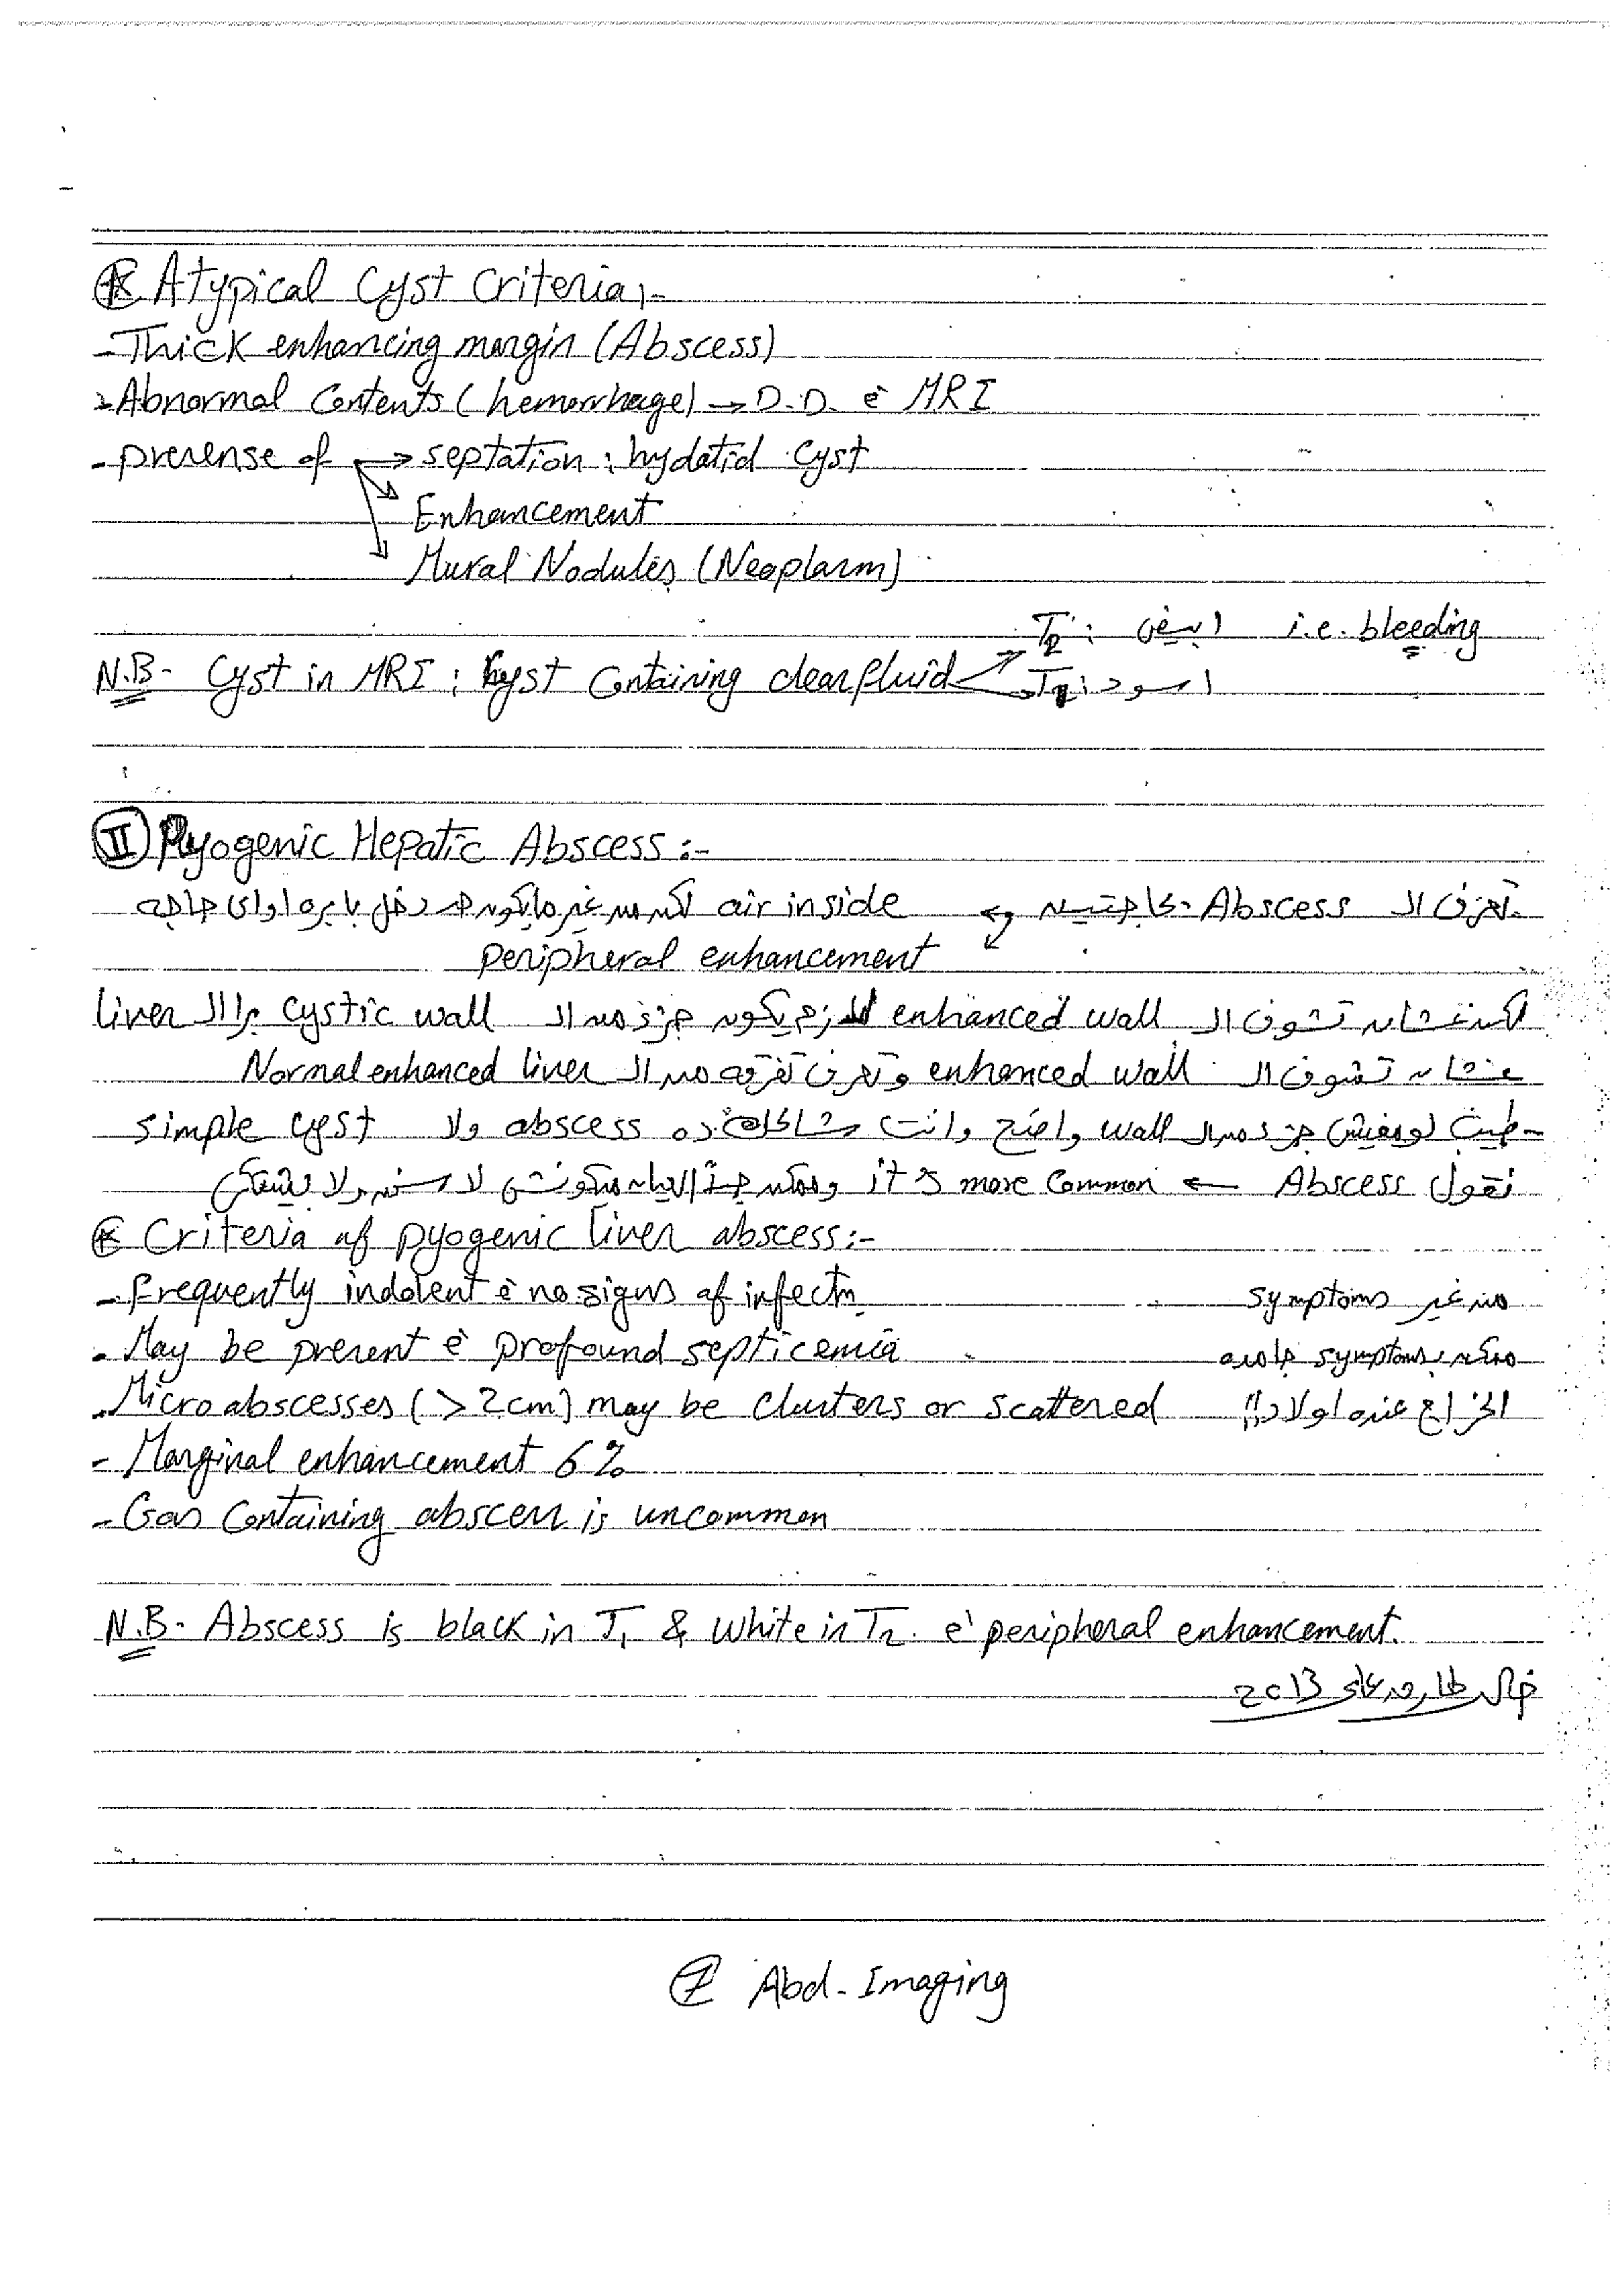 * Atypical Cyst Criteria:-
- Thick enhancing margin (Abscess)
- Abnormal Contents (hemorrhage) → D.D. è MRI
- presense of → septation : hydatid Cyst
Enhancement
Mural Nodules (Neoplasm)
T2 : ابيض i.e. bleeding
N.B- Cyst in MRI : Cyst Containing clear fluid
T1 : اسود
II Pyogenic Hepatic Abscess :-
تعرف ال Abscess بحاجتين → air inside لكن من غير مايكون دخل بابره او اى حاجه
peripheral enhancement
لكن عشان تشوف ال enhanced wall لازم يكون جزء من ال cystic wall برا ال liver
عشان تشوف ال enhanced wall وتعرف تفرقه من ال Normal enhanced liver
- طيب لو مفيش جزء من ال wall واضح وانت شاكك ده abscess ولا simple cyst
نقول Abscess ← it's more common وممكن جداً العيان ميكونش لا سخن ولا بيشتكى
* Criteria of pyogenic liver abscess:-
- frequently indolent è no signs of infectn من غير symptoms
- May be present è profound septicemia ممكن symptoms جامده
- Micro abscesses (> 2cm) may be clusters or scattered الخراج عنده اولاد!!
- Marginal enhancement 6%
- Gas Containing abscess is uncommon
N.B- Abscess is black in T1 & white in T2 è peripheral enhancement.
2013
7 Abd-Imaging